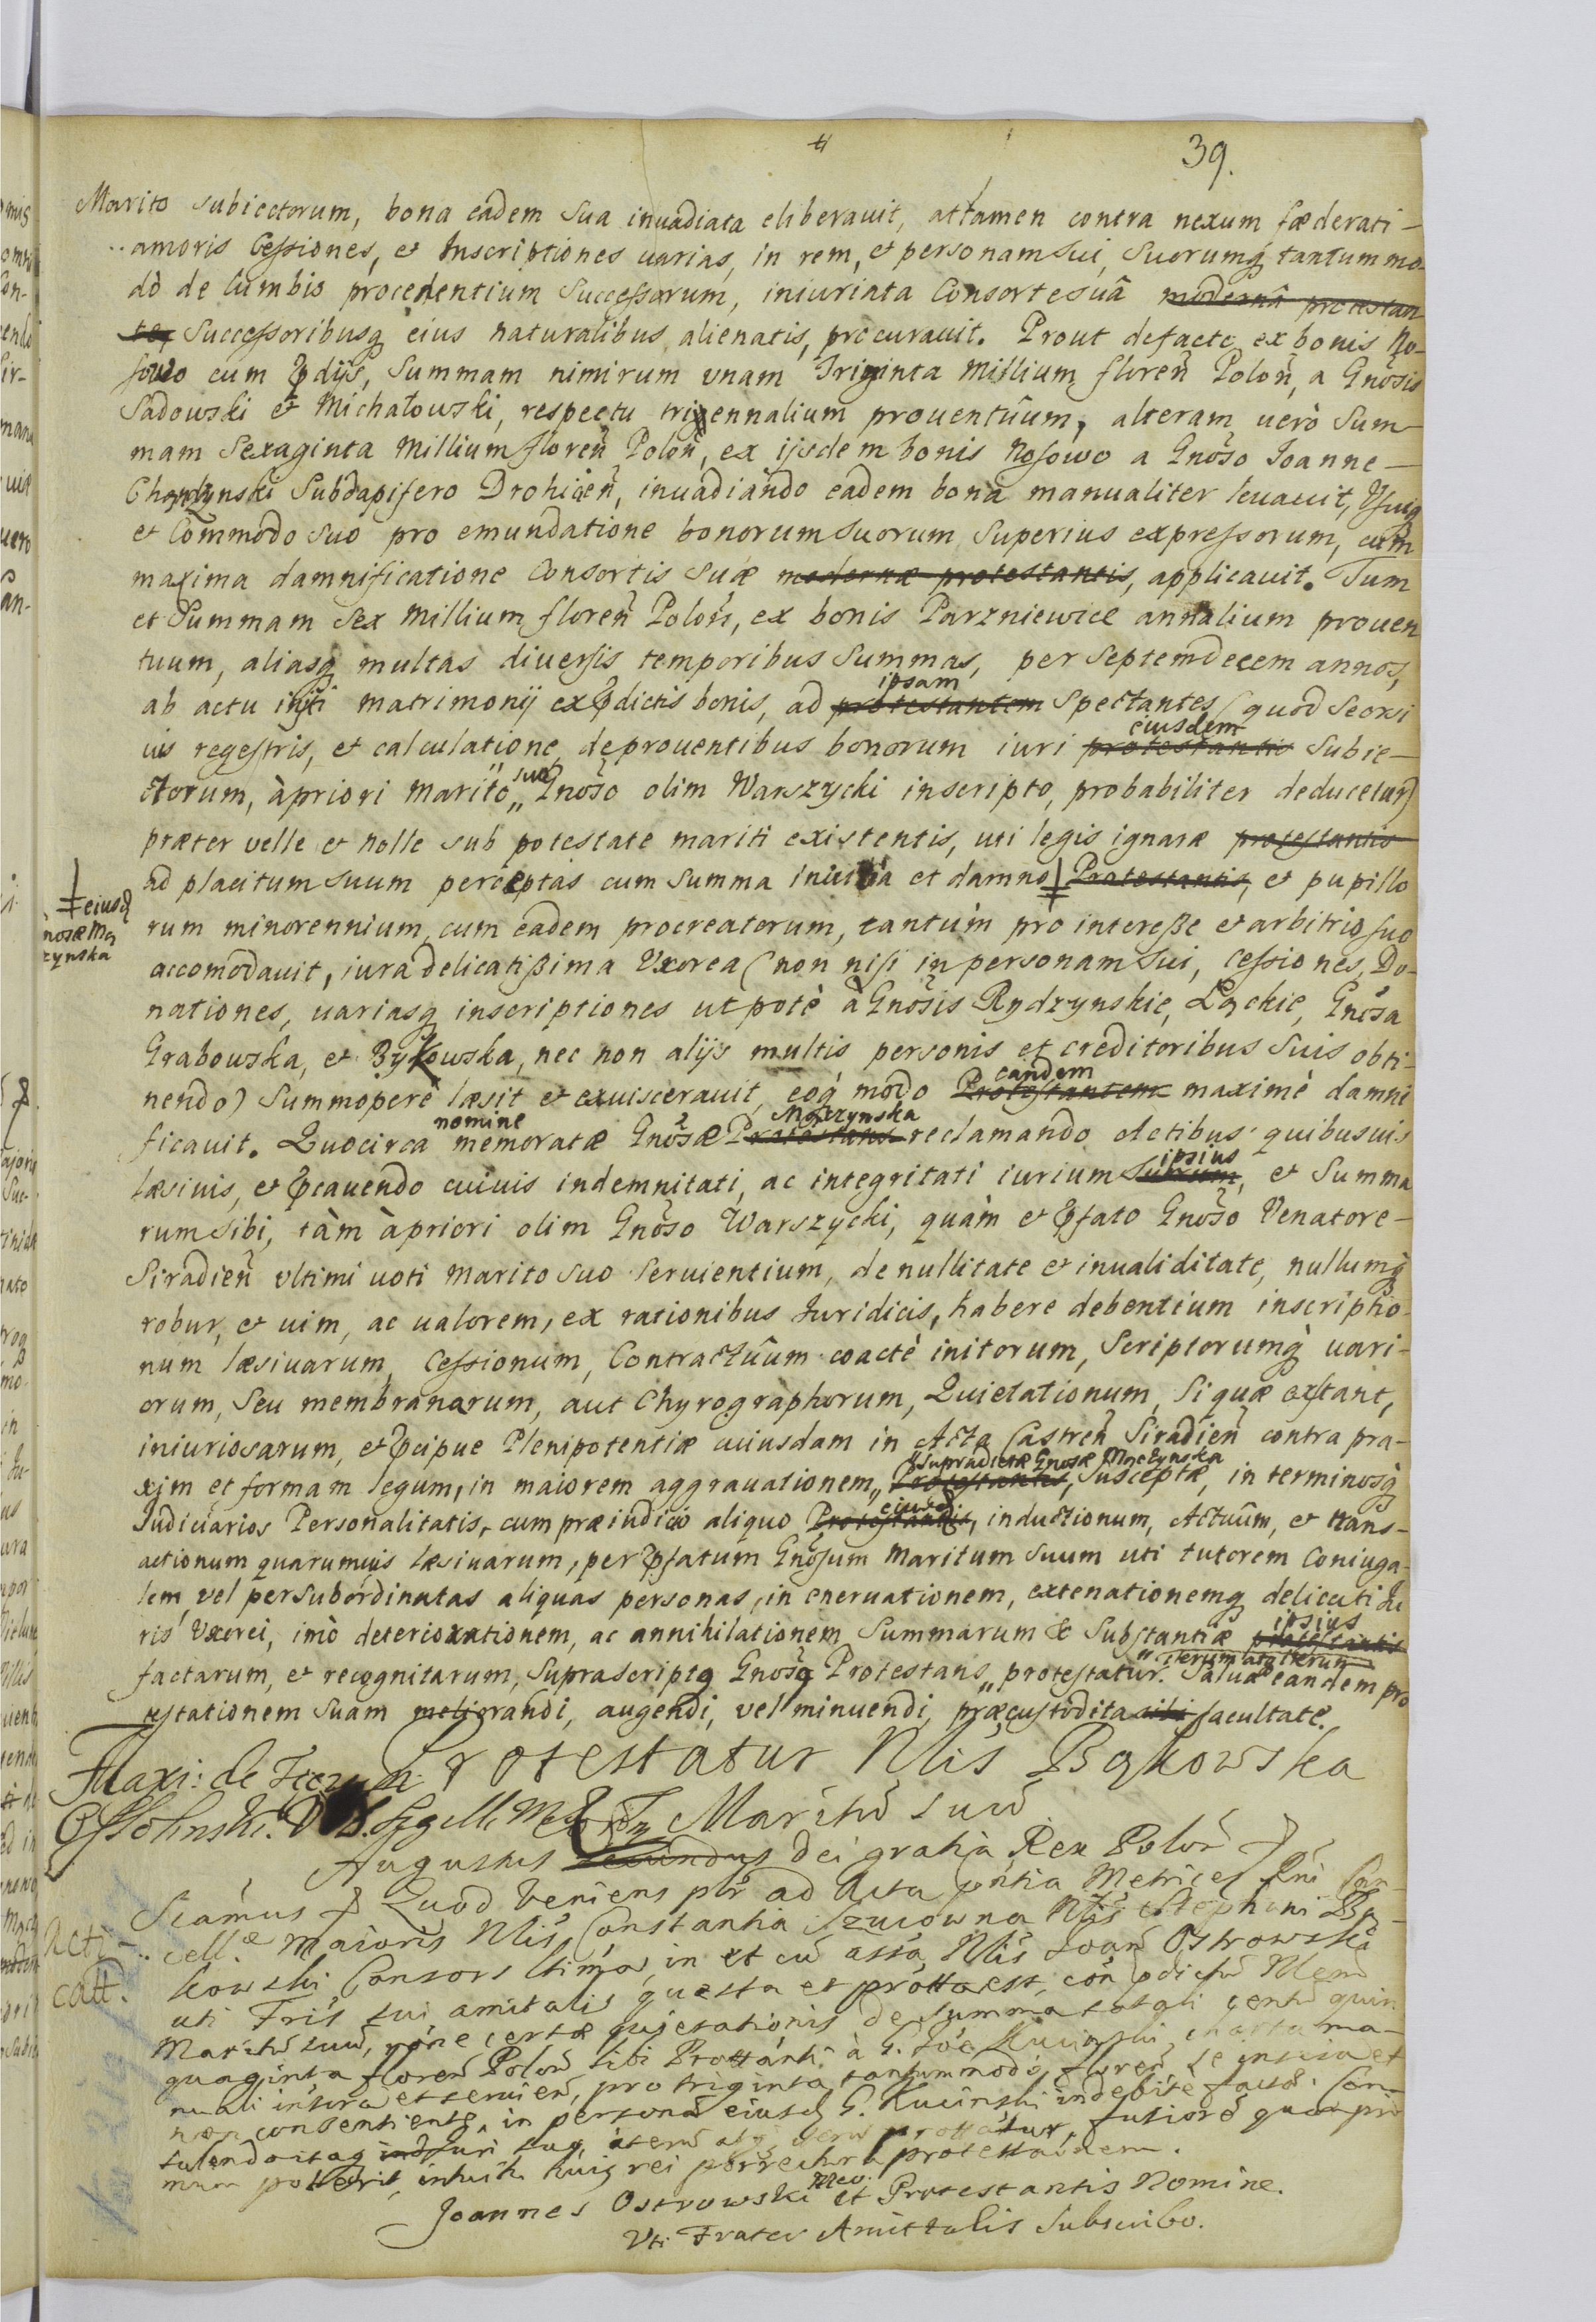 39.
Marito subiectorum, bona eadem sua inuadiata eliberauit, attamen contra nexum fæderati-
amoris Cessiones, et Inscriptiones uarias, in rem, et personam sui, suorumq tantummo-
dò de lumbis procedentium Successorum, iniuriata Consorte suâ modernâ protestan
te, Successoribusq eius naturalibus alienatis, procurauit. Prout defacto ex bonis No-
sowo cum Pdijs, Summam nimirum vnam Triginta Millium floreñ Poloñ, a Gnosis
Sadowski et Michałowski, respectu triennalium prouentûum, alteram uerò Sum-
mam Sexaginta Millium floreñ Poloñ, ex ijsdem bonis Nosowo a Gnoso Joanne-
Chądzynski Subdapifero Drohiceñ, inuadiando eadem bona manualiter leuauit, Vsuiq
et Commodo suo pro emundatione bonorum suorum superius expressorum, cum
maxima damnificatione Consortis suæ modernæ protestantis, applicauit. Tum
et Summam Sex Millium floreñ Poloñ, ex bonis Parzniewice annalium prouen
tuum, aliasq multas diuersis temporibus Summas, per Septemdecem annos,
ab actu initi matrimonij ex pdictis bonis, ad protestantem ipsam Spectantes (quod seorsi
uis regestris, et calculatione, de prouentibus bonorum iuri protestantis eiusdem Subie-
ctorum, à priori Marito suo Gnoso olim Warszycki inscripto, probabiliter deducetur)
præter velle et nolle sub potestate mariti existentis, uti legis ignaræ protestantis
ad placitum suum perceptas cum summa iniuria et damno Protestantis, et pupillo
eiusd
nosæ Mą
czynska
rum minorennium, cum eadem procreatorum, tantum pro interesse et arbitrio suo
accomodauit, iura delicatissima Vxorea (non nisi in personam sui, cessiones, Do-
nationes, uariasq inscriptiones utpotè à Gnosis Rydzynskie, Łąckie, Gnosa
Grabowska, et Bykowska, nec non alijs multis personis et creditoribus suis obti-
nendo) Summoperè læsit et exuiscerauit, eoq modo Protestantem eandem maximè damni
ficauit. Quocirca nomine memoratæ Gnosæ Protestans Mączynska reclamando actibus quibusuis
læsiuis, et Pcauendo cuiuis indemnitati, ac integritati iurium suorum ipsius, et Summa
rum sibi, tàm à priori olim Gnoso Warszycki, quàm et Pfato Gnoso Venatore-
Siradieñ vltimi uoti Marito suo seruientium, de nullitate et inualiditate, nullumq
robur, et uim, ac ualorem, ex rationibus Iuridicis, habere debentium inscriptio-
num læsiuarum, Cessionum, Contractûum coactè initorum, Scriptorumq uari-
orum, seu membranarum, aut Chyrographorum, Quietationum, si quæ extant,
iniuriosarum, et Pcipue Plenipotentiæ cuiusdam in Acta Castreñ Siradieñ contra pra-
xim et formam legum, in maiorem aggrauationem, Protestantis supradictæ Gnosæ Mączynska, susceptæ, in terminosq
Iudiciarios Personalitatis, cum præiudicio aliquo Protestantis eiusd, inductionum, Actuûm, et trans-
actionum quarumuis læsiuarum, per Pfatum Gnosum Maritum suum uti tutorem Coniuga-
lem, vel per subordinatas aliquas personas, in eneruationem, extenationemq delicati Iu
ris Vxorei, imò deteriorationem, ac annihilationem Summarum & Substantiæ protestantis ipsius
factarum, et recognitarum, suprascripta Gnosa Protestans iterum atq iterum protestatur. Salua eandem pro
testationem suam meliorandi, augendi, vel minuendi, præcustodita sibi facultate.
Protestatur Nlis Bąkowska
Maritũ suũ
Ossolinski.
Augustus Secundus Dei gratia Rex Poloñ
Acti-
catt.
Sciamus Quod Veniens plr ad Acta pñtia Metrices Rni Can-
cellæ Maioris Nlis Constantia Szucowna Nlis Stephani Bą-
kowski Consors ltima, in et cũ assã Nlis Joañ Ostrowski
uti Fris sui amitalis questa et protta est, con pdictũ Nlem
Maritũ suũ, rõne certæ quietationis de summa totali centũ quin
quaginta floreñ Poloñ sibi Prottanti à G. Joe Kucinski charta ma-
nuali inscra et seruieñ, pro triginta tantummodo floreñ se inscia et
non consentiente, in personã eiusd G. Kucinski indebitè factæ. Con-
sulendo itaq iuri suo, iterũ atq iterũ prottatur, fusiorẽ quam pri
mum poterit, intuitu huiq rei porrectura protestaõnem.
Joannes Ostrowski meo et Protestantis Nomine.
Vti Frater Amittalis Subscribo.